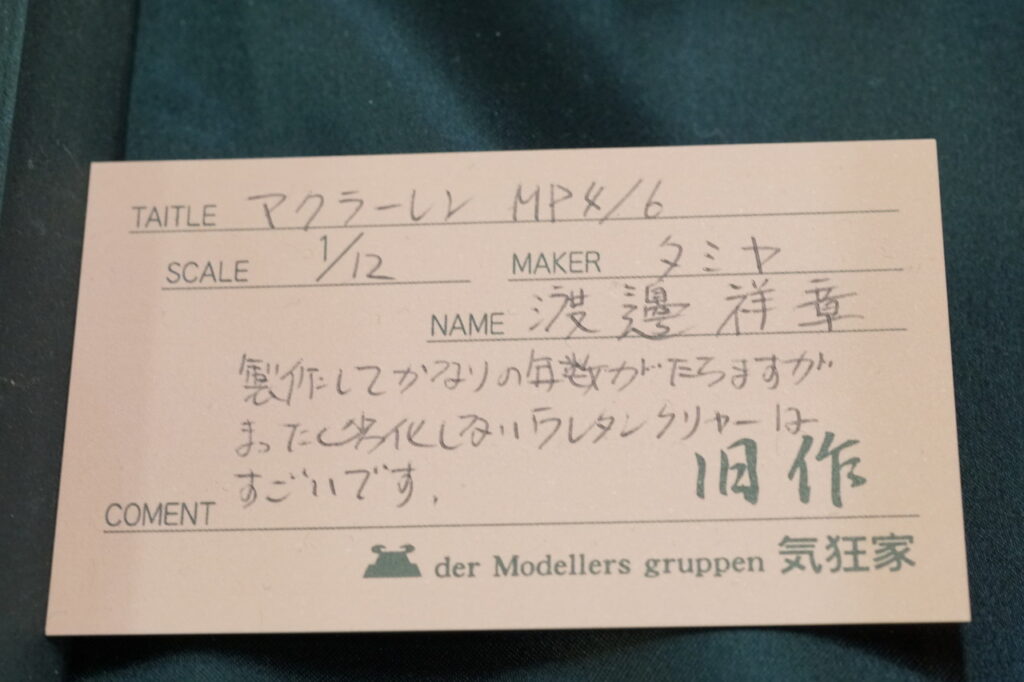 TAITLE マクラーレン MP4/6
SCALE 1/12 MAKER タミヤ
NAME 渡邊 祥章
製作してかなりの年数がたちますが
まったく劣化しないウレタンクリヤーは
すごいです.
旧作
COMENT
der Modellers gruppen 気狂家